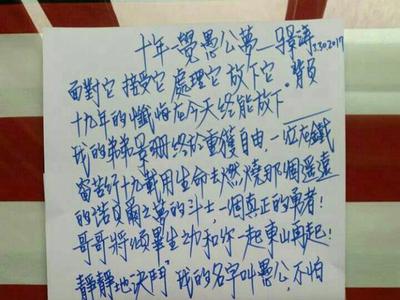 十年一覺愚公夢— 3.30.2019
面對它 接受它 處理它 放下它。背負
十九年的懺悔在今天終能放下。
我的弟弟終於重獲自由，一位在鐵
窗苦行十九載用生命去燃燒那個遙遠
的諾貝爾之夢的斗士，一個真正的勇者！
哥哥將傾畢生之力和你一起東山再起！
靜靜地決鬥，我的名字叫愚公，不怕